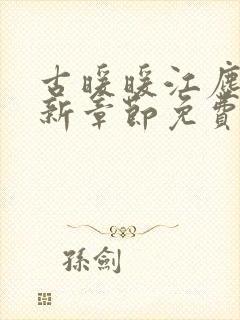 古暖暖江塵
新章節免費
孫劍